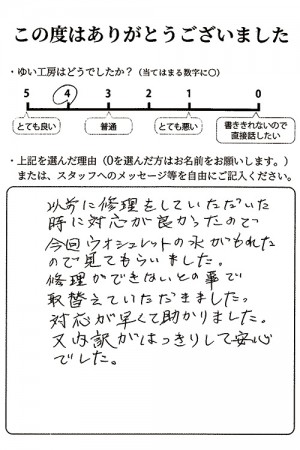 この度はありがとうございました
・ゆい工房はどうでしたか？（当てはまる数字に○）
5 4 3 2 1 0
とても良い 普通 とても悪い 書ききれないので直接話したい
・上記を選んだ理由（0を選んだ方はお名前をお願いします。）
または、スタッフへのメッセージ等を自由にご記入ください。
以前に修理をしていただいた
時に対応が良かったので
今回ウオシュレットの水がもれた
ので見てもらいました。
修理ができないとの事で
取替えていただきました。
対応が早くて助かりました。
又内訳がはっきりして安心
でした。